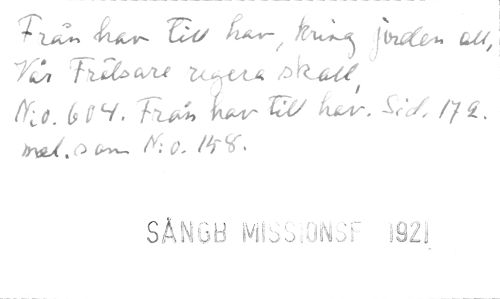 Från hav till hav, kring jorden all,
Vår Frälsare regera skall,
N:o. 604. Från hav till hav. Sid. 172.
mel. som N:o. 158.
SÅNGB MISSIONSF 1921